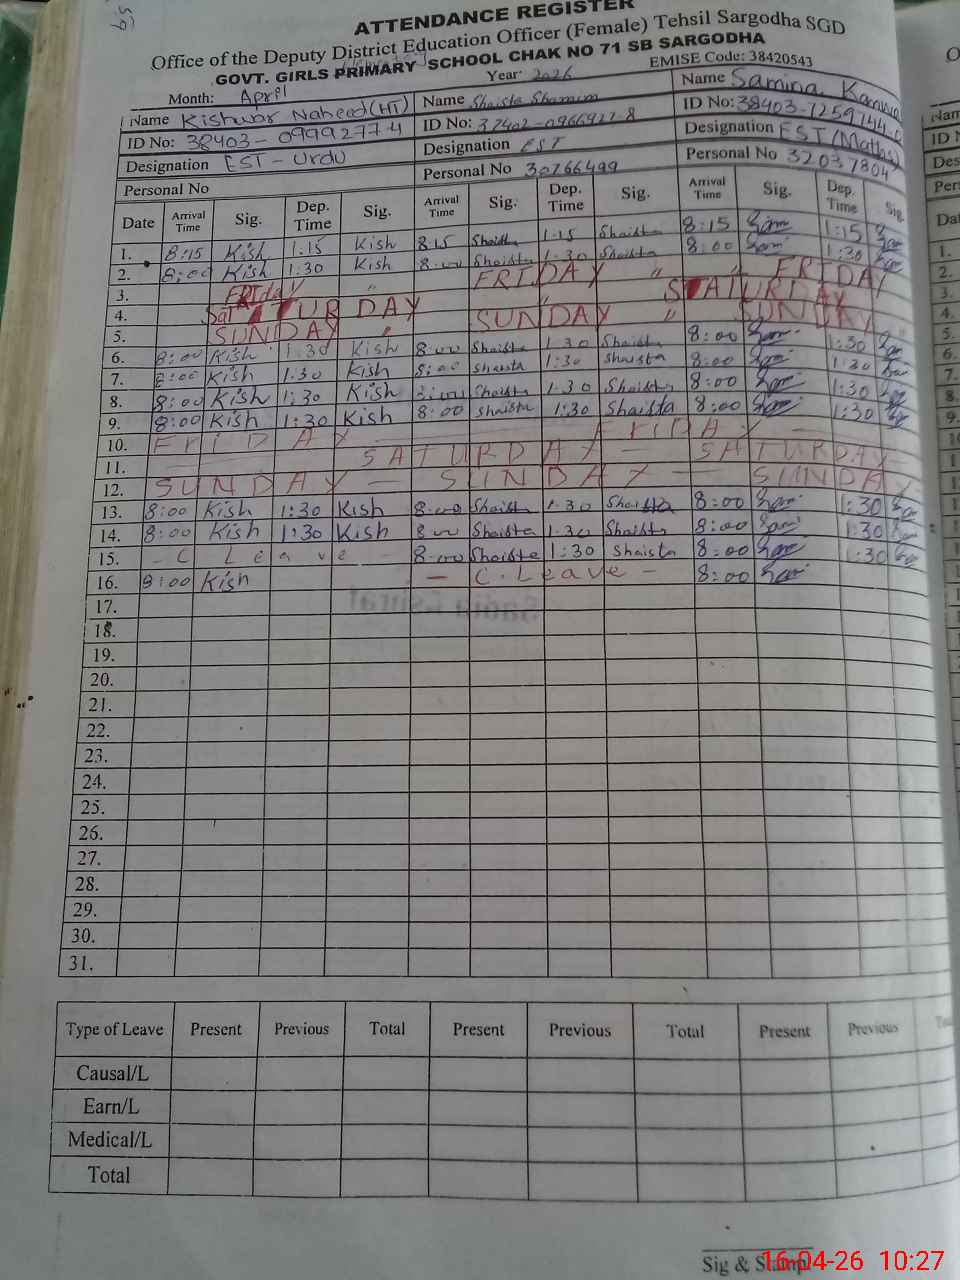 ATTENDANCE REGISTER
Office of the Deputy District Education Officer (Female) Tehsil Sargodha SGD
GOVT. GIRLS PRIMARY SCHOOL CHAK NO 71 SB SARGODHA
Month: April Year 2026 EMISE Code: 38420543
Name Kishwar Naheed (HT) Name Shaista Shamim Name Samina
ID No: 38403-0999277-4 ID No: ID No: 38403-7259744-
Designation EST - Urdu Designation EST Designation EST (Maths)
Personal No Personal No 30766499 Personal No 32037804
Date Arrival Time Sig. Dep. Time Sig. Arrival Time Sig. Dep. Time Sig. Arrival Time Sig. Dep. Time Sig.
1. 8:15 Kish 1.15 Kish 8.15 Shaista 1.15 Shaista 8:15 Sam 1:15 Sam
2. 8:00 Kish 1:30 Kish 8.00 Shaista 1.30 Shaista 8:00 Sam 1:30 Sam
3. FRIday " FRIDAY " " FRIDAY
4. SatURDAY " SATURDAY
5. SUNDAY " SUNDAY " SUNDAY
6. 8:00 Kish 1:30 Kish 8.00 Shaista 1.30 Shaista 8:00 Sam 1:30 Sam
7. 8:00 Kish 1.30 Kish 8:00 Shaista 1:30 Shaista 8:00 Sam 1:30 Sam
8. 8:00 Kish 1:30 Kish 8:00 Shaista 1.30 Shaista 8:00 Sam 1:30 Sam
9. 8:00 Kish 1:30 Kish 8:00 Shaista 1:30 Shaista 8:00 Sam 1:30 Sam
10. FRIDAY — FRIDAY —
11. — SATURDAY — SATURDAY —
12. SUNDAY — SUNDAY — SUNDAY
13. 8:00 Kish 1:30 Kish 8.00 Shaista 1.30 Shaista 8:00 Sam 1:30 Sam
14. 8:00 Kish 1:30 Kish 8.00 Shaista 1.30 Shaista 8:00 Sam 1:30 Sam
15. - C Leave - 8:00 Shaista 1:30 Shaista 8:00 Sam 1:30 Sam
16. 8:00 Kish - C. Leave - 8:00 Sam
17.
18.
19.
20.
21.
22.
23.
24.
25.
26.
27.
28.
29.
30.
31.
Type of Leave Present Previous Total Present Previous Total Present Previous
Causal/L
Earn/L
Medical/L
Total
Sig & Stamp
16-04-26 10:27